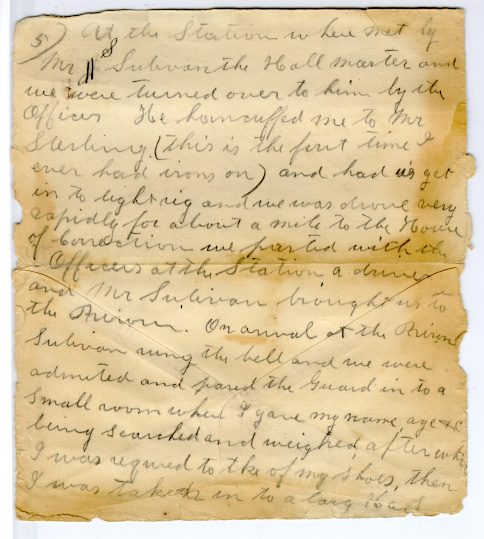 5) At the Station where met by
Mr S Sulivan the Hall master and
we were turned over to him by the
Officer He hancuffed me to Mr
Sterling (this is the first time I
ever had irons on) and had us get
in to light rig and we was drove very
rapidly for about a mile to the House
of Correction we parted with the
Officers at the Station a driver
and Mr Sulivan brought us to
the Prison. On arrival at the Prison
Sulivan rung the bell and we were
admited and pased the Guard in to a
small room where I gave my name, age &c
being searched and weighed, after which
I was requred to tke of my shoes, then
I was taken in to a larg Hall